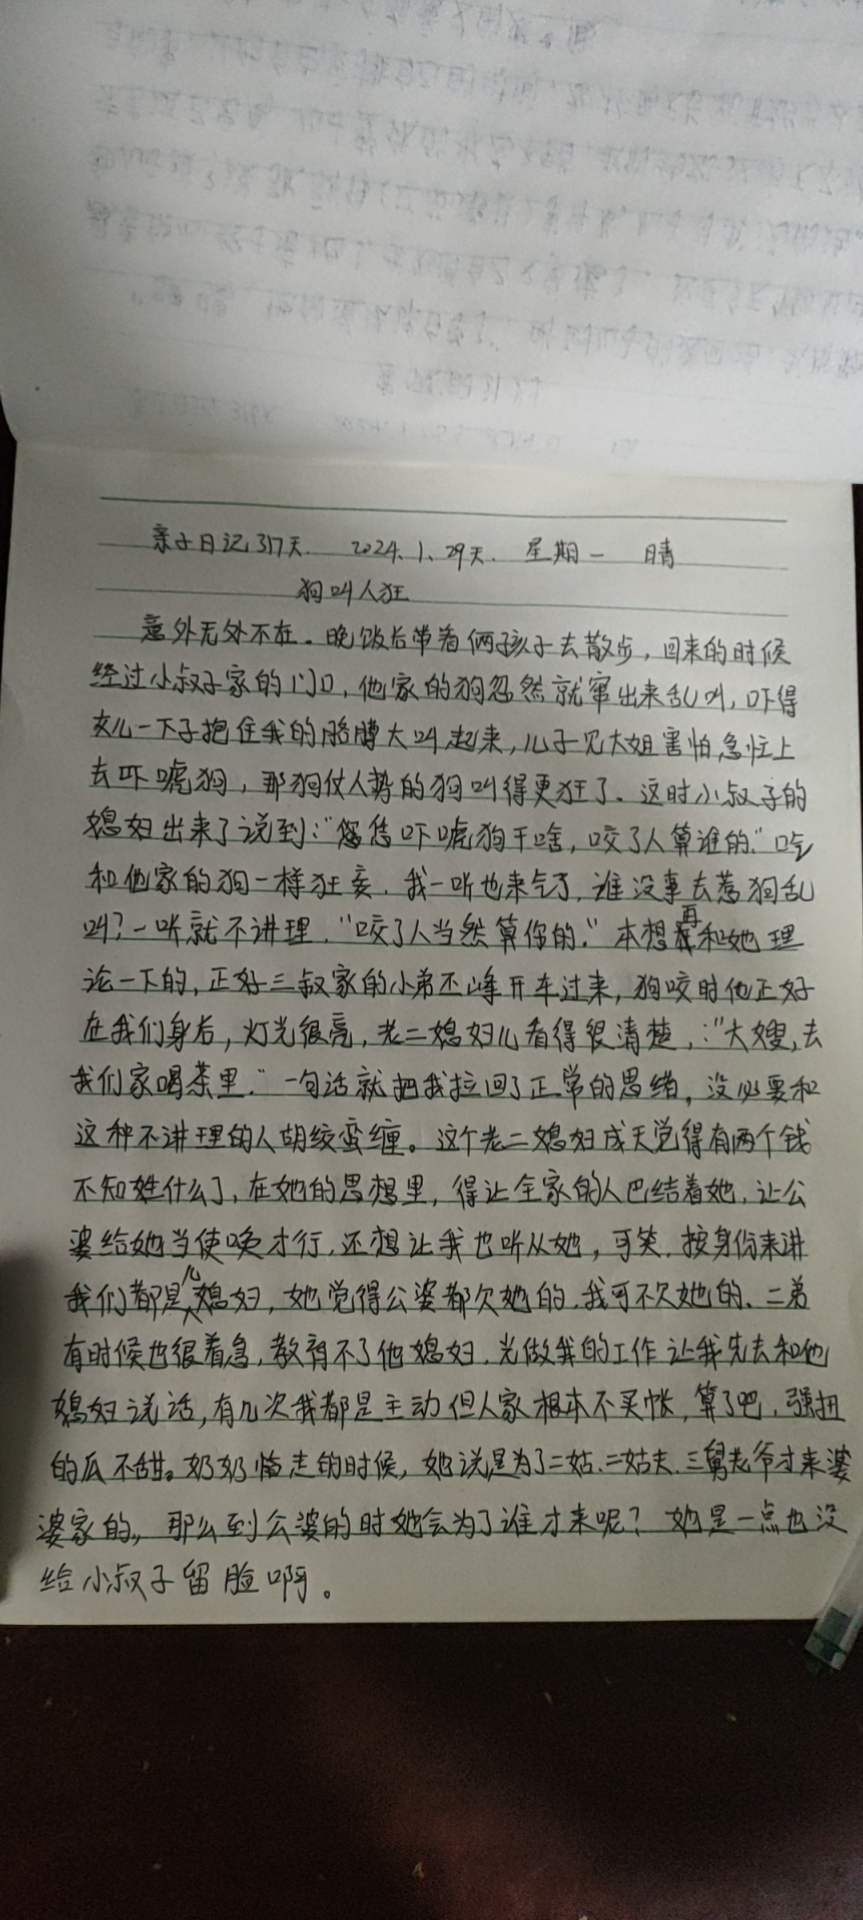 亲子日记317天. 2024.1.29天. 星期一 晴
狗叫人狂
意外无处不在。晚饭后带着俩孩子去散步，回来的时候
经过小叔子家的门口，他家的狗忽然就窜出来乱叫，吓得
女儿一下子抱住我的胳膊大叫起来，儿子见大姐害怕急忙上
去吓唬狗，那狗仗人势的狗叫得更狂了。这时小叔子的
媳妇出来了说到：“您恁吓唬狗干啥，咬了人算谁的.”口气
和他家的狗一样狂妄.我一听也来气了，谁没事去惹狗乱
叫？一听就不讲理，“咬了人当然算你的.”本想再和她理
论一下的，正好三叔家的小弟丕峰开车过来，狗咬时他正好
在我们身后，灯光很亮，老二媳妇儿看得很清楚，：“大嫂，去
我们家喝茶里.”一句话就把我拉回了正常的思绪，没必要和
这种不讲理的人胡绞蛮缠。这个老二媳妇成天觉得有两个钱
不知姓什么了，在她的思想里，得让全家的人巴结着她，让公
婆给她当使唤才行，还想让我也听从她，可笑.按身份来讲
我们都是儿媳妇，她觉得公婆都欠她的，我可不欠她的、二弟
有时候也很着急，教育不了他媳妇，光做我的工作让我先去和他
媳妇说话，有几次我都是主动但人家根本不买帐，算了吧，强扭
的瓜不甜。奶奶临走的时候，她说是为了二姑、二姑夫、三舅老爷才来婆
婆家的，那么到公婆的时她会为了谁才来呢？她是一点也没
给小叔子留脸啊。